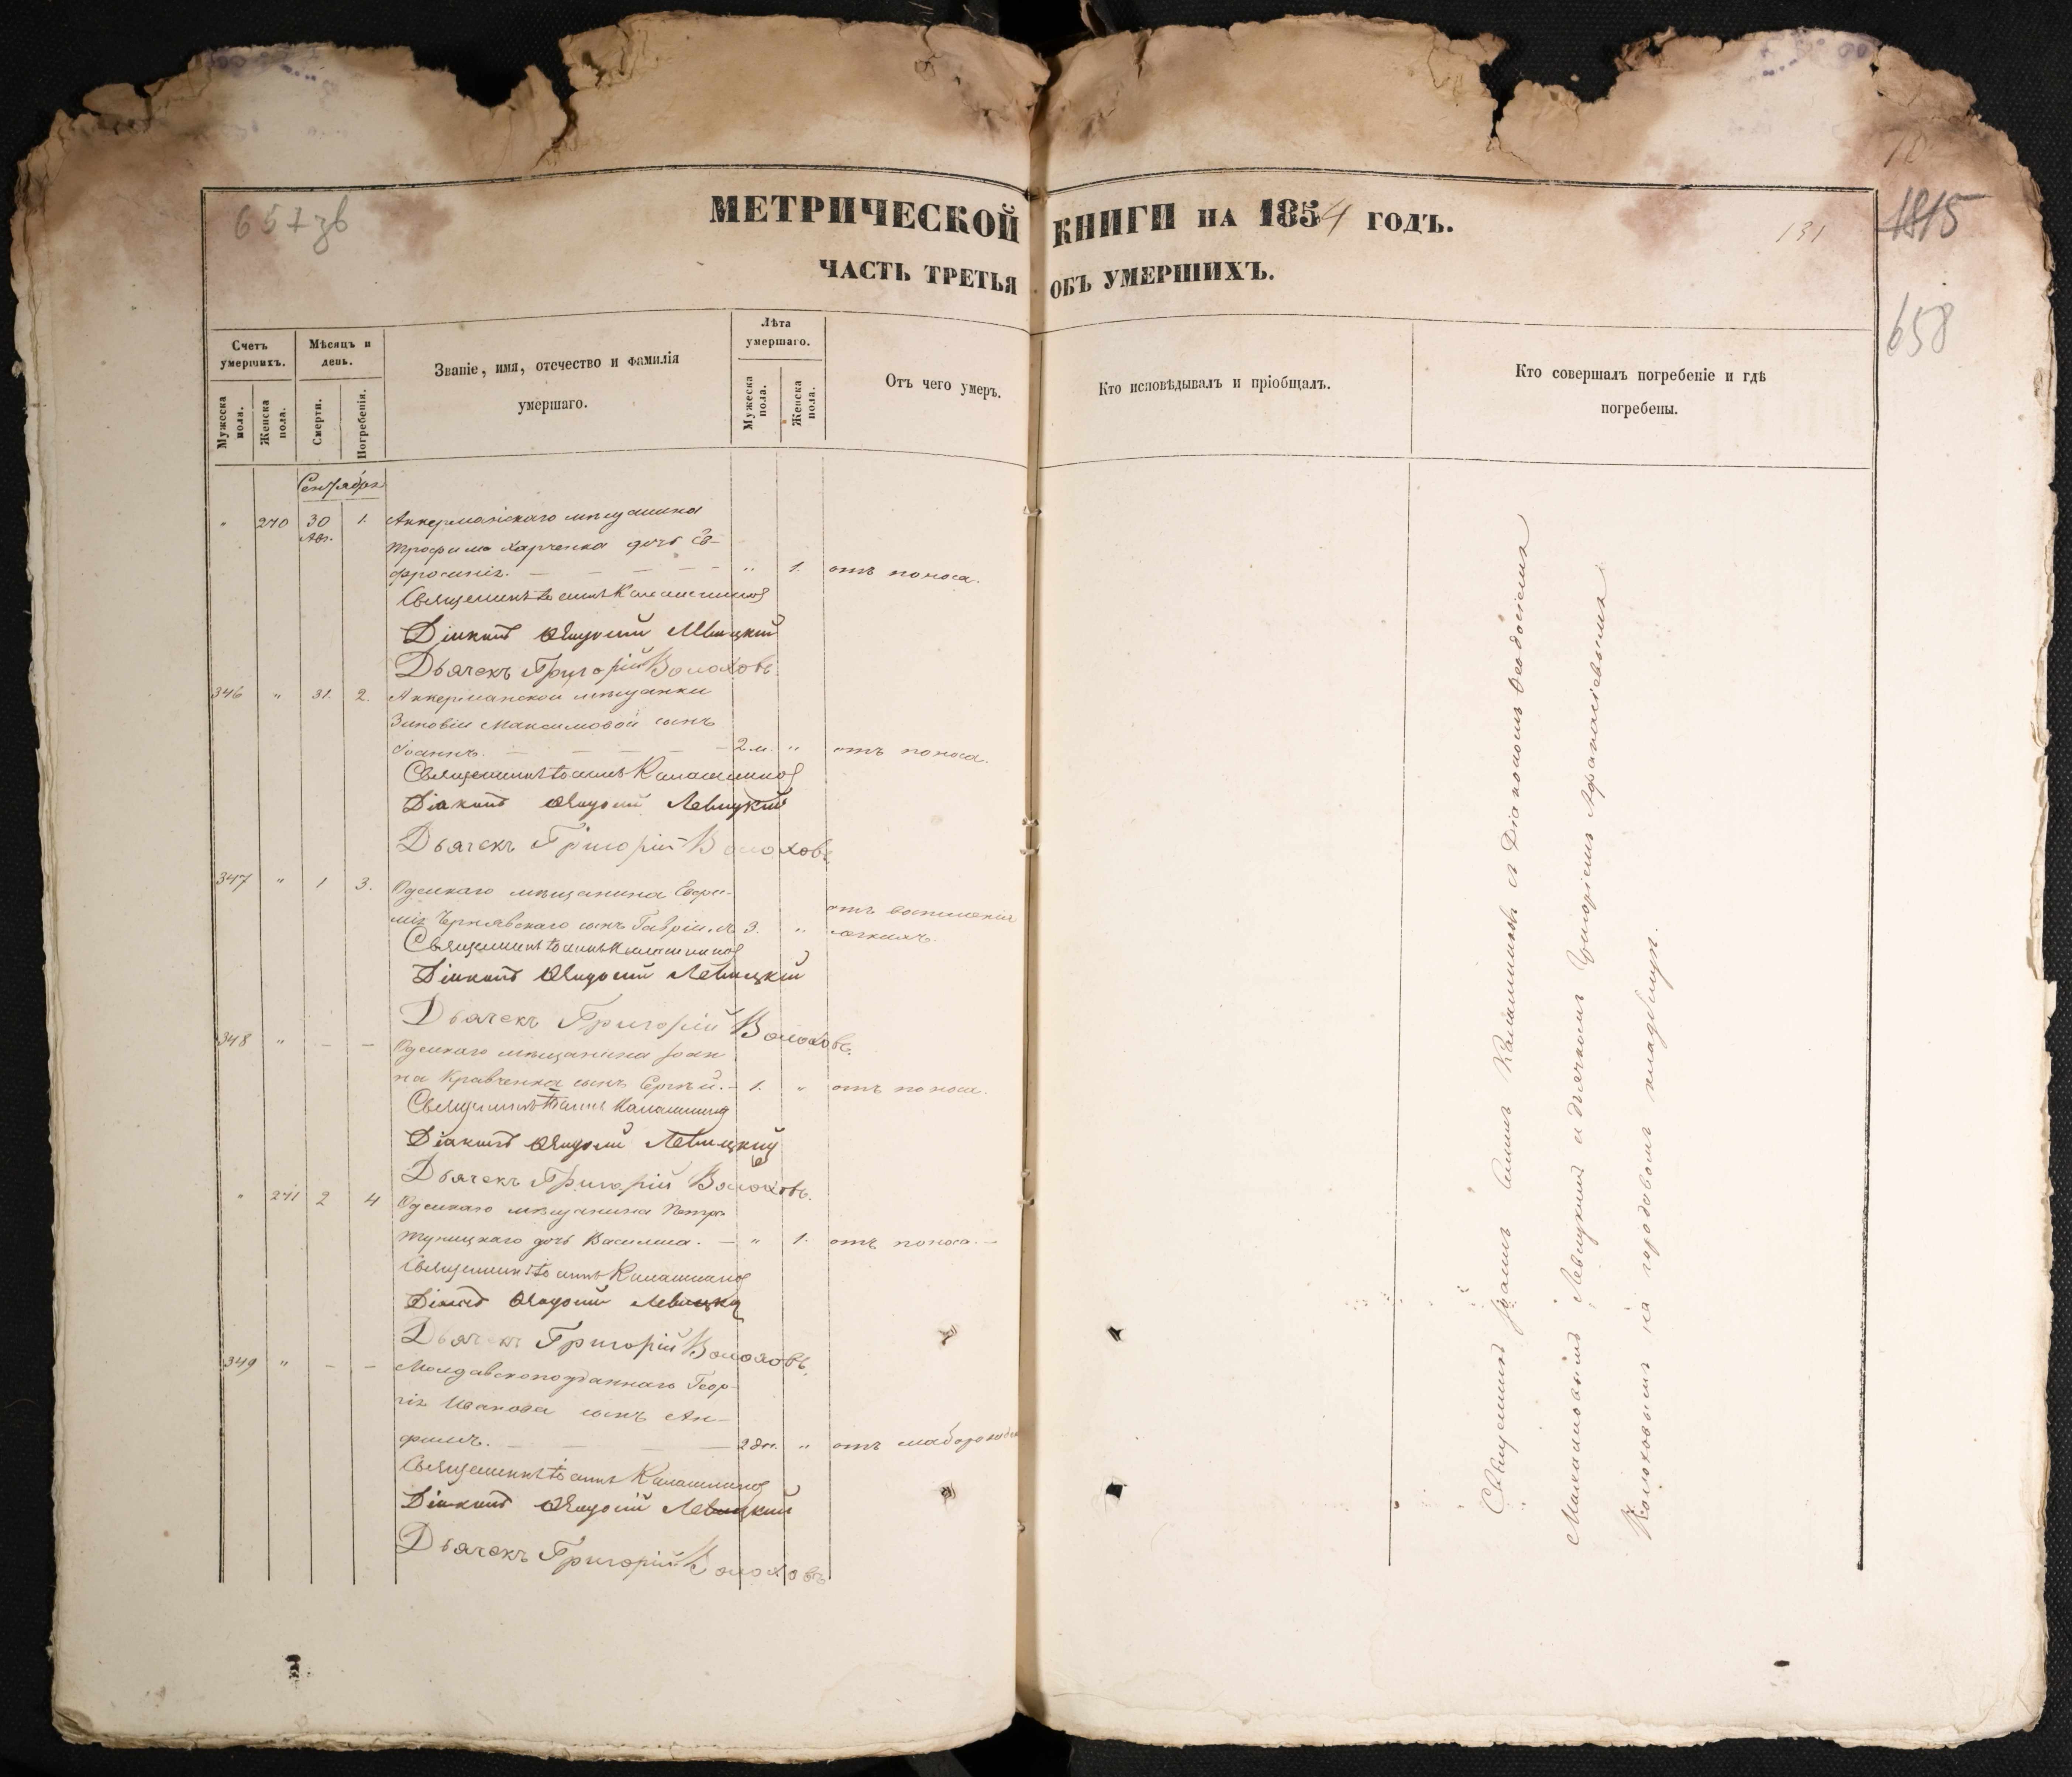 657 зв
МЕТРИЧЕСКОЙ КНИГИ НА 1854 ГОДЪ.
131
1815
658
ЧАСТЬ ТРЕТЬЯ ОБЪ УМЕРШИХЪ.
Счетъ умершихъ.
Мѣсяцъ и день.
Званіе, имя, отечество и фамилія умершаго.
Лѣта умершаго.
Отъ чего умеръ.
Кто исповѣдывалъ и пріобщалъ.
Кто совершалъ погребеніе и гдѣ погребены.
Мужеска пола.
Женска пола.
Смерти.
Погребенія.
Мужеска пола.
Женска пола.
Сентябрь
" 270 30 Авг. 1. Аккерманскаго мѣщанина
Трофима Харченка дочь Ев-
фросинія. " 1. отъ поноса.
Священникъ Іоаннъ Калашниковъ
Діаконъ Ѳеодосій Левицкій
Дьячекъ Григорій Волоховъ
346 " 31. 2. Аккерманской мѣщанки
Зиновіи Максимовой сынъ
Іоаннъ. 2 м. " отъ поноса.
Священникъ Іоаннъ Калашниковъ
Діаконъ Ѳеодосій Левицкій
Дьячекъ Григорій Волоховъ
347 " 1 3. Одесскаго мѣщанина Евфи-
мія Чернявскаго сынъ Гавріилъ 3. " отъ воспаленія
легкихъ.
Священникъ Іоаннъ Калашниковъ
Діаконъ Ѳеодосій Левицкій
Дьячекъ Григорій Волоховъ.
348 " — — Одесскаго мѣщанина Іоан-
на Кравченка сынъ Сергѣй. 1. " отъ поноса.
Священникъ Іоаннъ Калашниковъ
Діаконъ Ѳеодосій Левицкій
Дьячекъ Григорій Волоховъ.
" 271 2 4 Одесскаго мѣщанина Петра
дочь Василиса. — " 1. отъ поноса. —
Священникъ Іоаннъ Калашниковъ
Діаконъ Ѳеодосій Левицкій
Дьячекъ Григорій Волоховъ.
349 " — — Молдавскоподданнаго Геор-
гія Иванова сынъ Ан-
фимъ. 2 дн. " отъ
Священникъ Іоаннъ Калашниковъ
Діаконъ Ѳеодосій Левицкій
Дьячекъ Григорій Волоховъ
Священникъ Іоаннъ Калашниковъ съ Діакономъ Ѳеодосіемъ
Левицкимъ и дьячкомъ Григоріемъ Афанасіевымъ
Волоховымъ на городовомъ кладбищѣ.